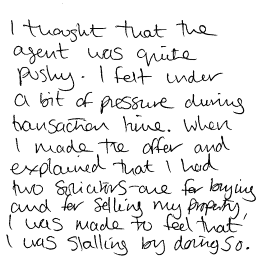 I thought that the
agent was quite
pushy. I felt under
a bit of pressure during
transaction time. When
I made the offer and
explained that I had
two solicitors-one for buying
and for selling my property,
I was made to feel that
I was stalling by doing so.